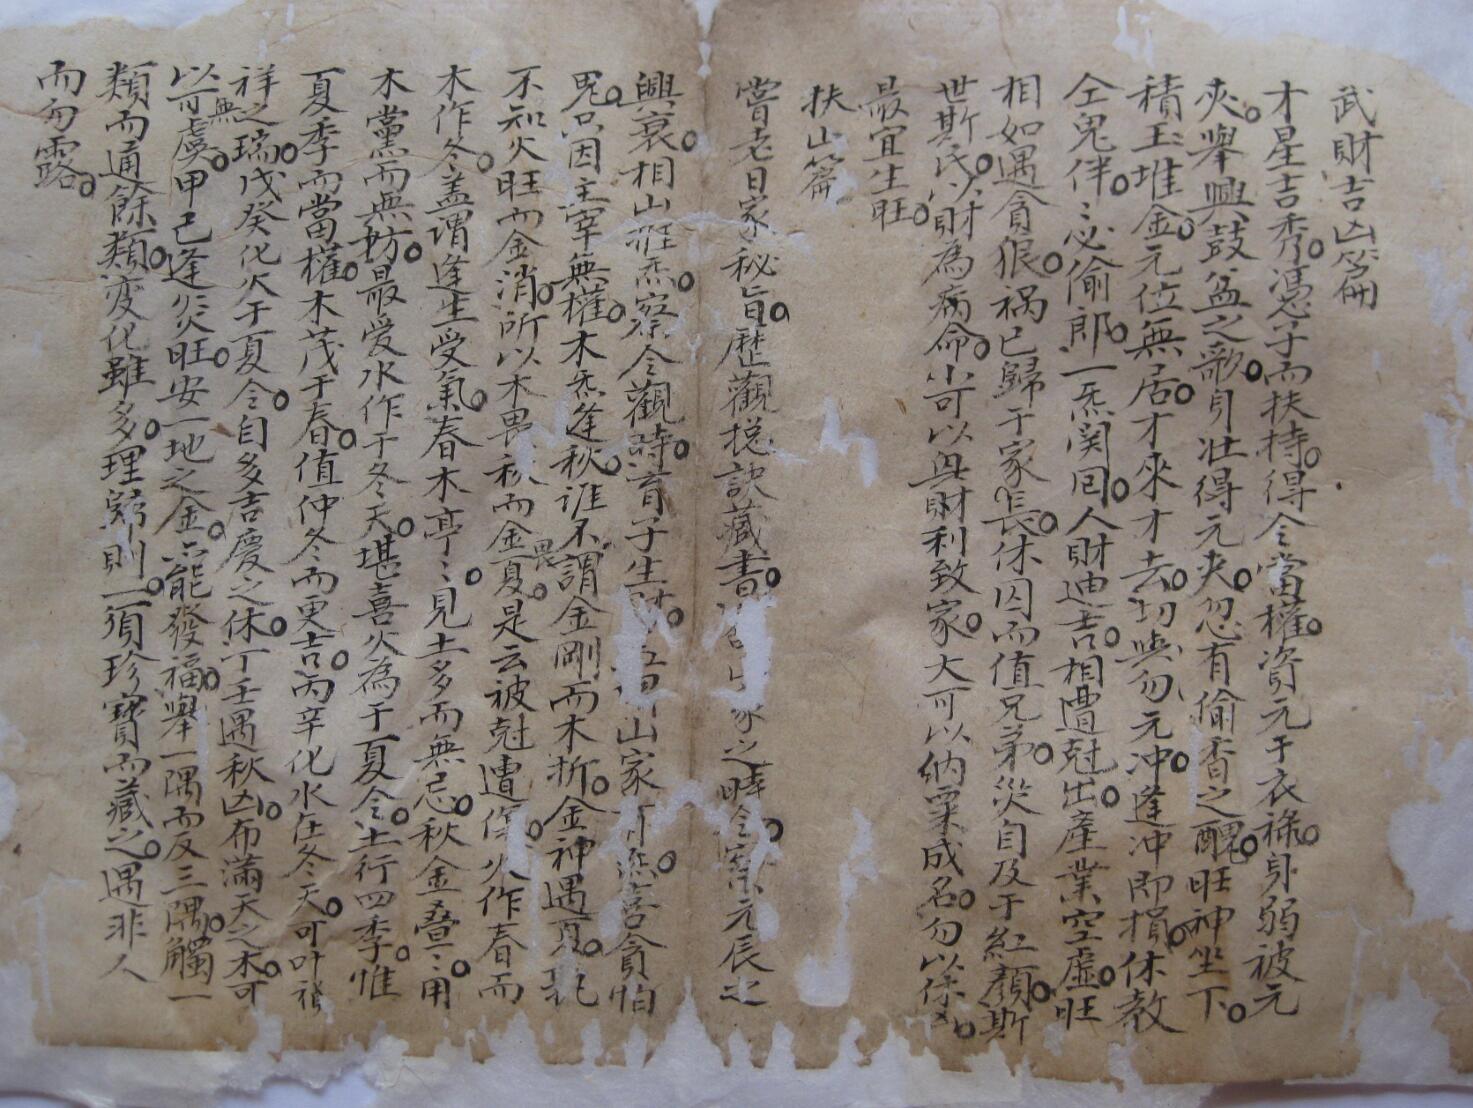 武財吉凶篇
才星吉秀。憑子而扶持。得令當權。資元于衣祿。身弱被元
夾。舉興鼓盆之歌。身壯得元夾。忽有偷香之醜。旺神坐下。
積玉堆金。元位無居。才來才去。切與勿元冲。逢冲即損。休教
仝鬼伴。伴必偷郎。一炁関囘。人財迪吉。相遭尅出。產業空虛。旺
相如遇貪狠。禍已歸于家長。休囚而值兄弟。災自及于紅顏。斯
世斯民。以財為病命。小可以興財利致家。大可以納粟成名。勿以保凶。
最宜生旺。
扶山篇
嘗老日家秘旨。歷觀摠訣藏書。家之時令。察元辰之
興衰。相山旺炁。察令觀時。育子生財。山家可炁。喜貪怕
鬼。只因主宰無權。木炁逢秋。誰不謂金剛而木折。金神遇夏。
不知火旺而金消。所以木畏秋而金畏夏。是云被尅遭傷。火作春而
木作冬。盖謂逢生受氣。春木亭亭。見土多而無忌。秋金叠叠。用
木黨而無妨。最愛水作于冬天。堪喜火為于夏令。土行四季。惟
夏季而當權。木茂于春。值仲冬而更吉。丙辛化水在冬天。可叶禎
祥之瑞。戊癸化火于夏令。自多吉慶之休。丁壬遇秋凶。布滿天之木。可
以無虞。甲己逢災旺。安一地之金。能發福。舉一隅而反三隅。觸一
類而通餘類。変化雖多。理歸則一。須珍寶而藏之。遇非人
而勿露。